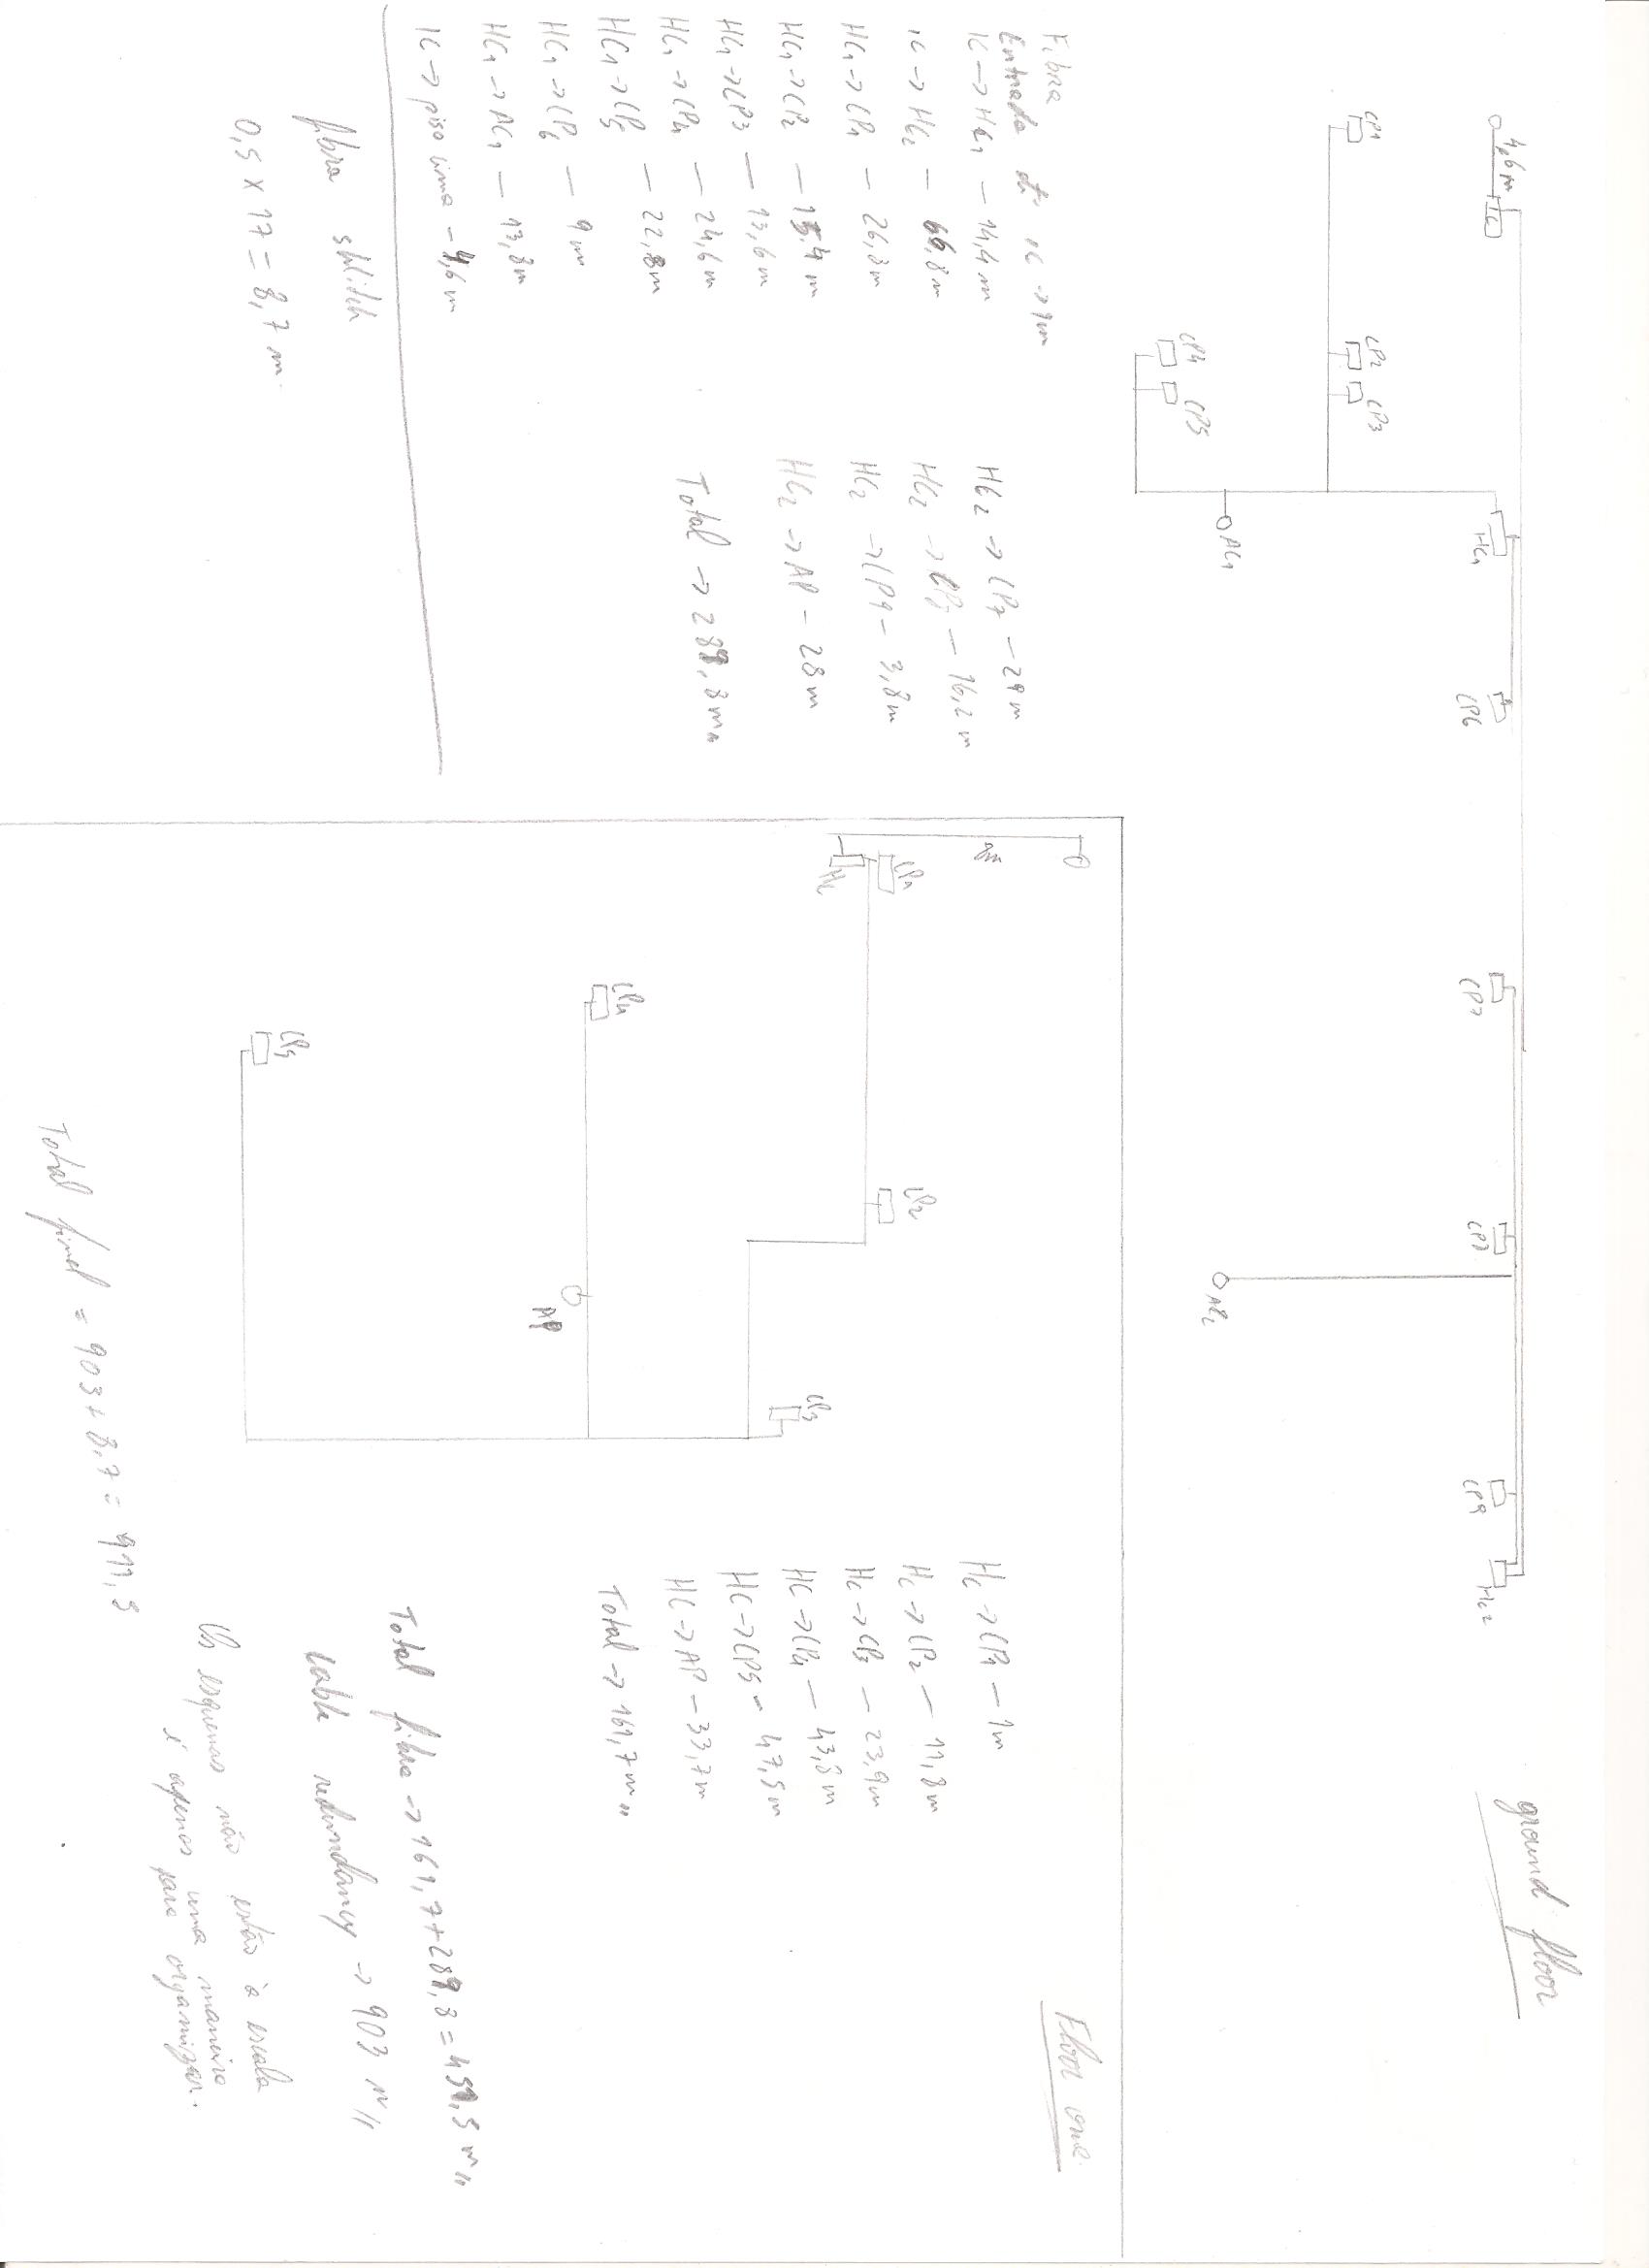 ground floor
4,6 m
IC
HC1
CP6
CP7
CP8
CP9
HC2
CP1
CP2
CP3
AC1
CP4
CP5
Fibra
Entrada até IC -> 1m
IC -> HC1 - 14,4 m
IC -> HC2 - 66,8m
HC1 -> CP1 - 26,8m
HC1 -> CP2 - 15.4 m
HC1 -> CP3 - 13,6m
HC1 -> CP4 - 24,6m
HC1 -> CP5 - 22,8m
HC1 -> CP6 - 9m
HC1 -> AC1 - 13,8m
IC -> piso cima - 4,6m
HC2 -> CP7 - 29m
HC2 -> CP8 - 16,2 m
HC2 -> CP9 - 3,8m
HC2 -> AP - 28m
Total -> 289,8m
fibra
0,5 x 17 = 8,7 m
Floor one
8m
CP1
HC
CP2
CP3
CP4
AP
CP5
HC -> CP1 - 1m
HC -> CP2 - 11,8m
HC -> CP3 - 23,9m
HC -> CP4 - 43,8m
HC -> CP5 - 47,5m
HC -> AP - 33,7m
Total -> 161,7m
Total fibra -> 161,7+289,8 = 451,5 m
cable redundancy -> 903 m
Os esquemas não estão à escala
é apenas uma maneira
para organizar.
Total final = 903 + 8,7 = 911,5